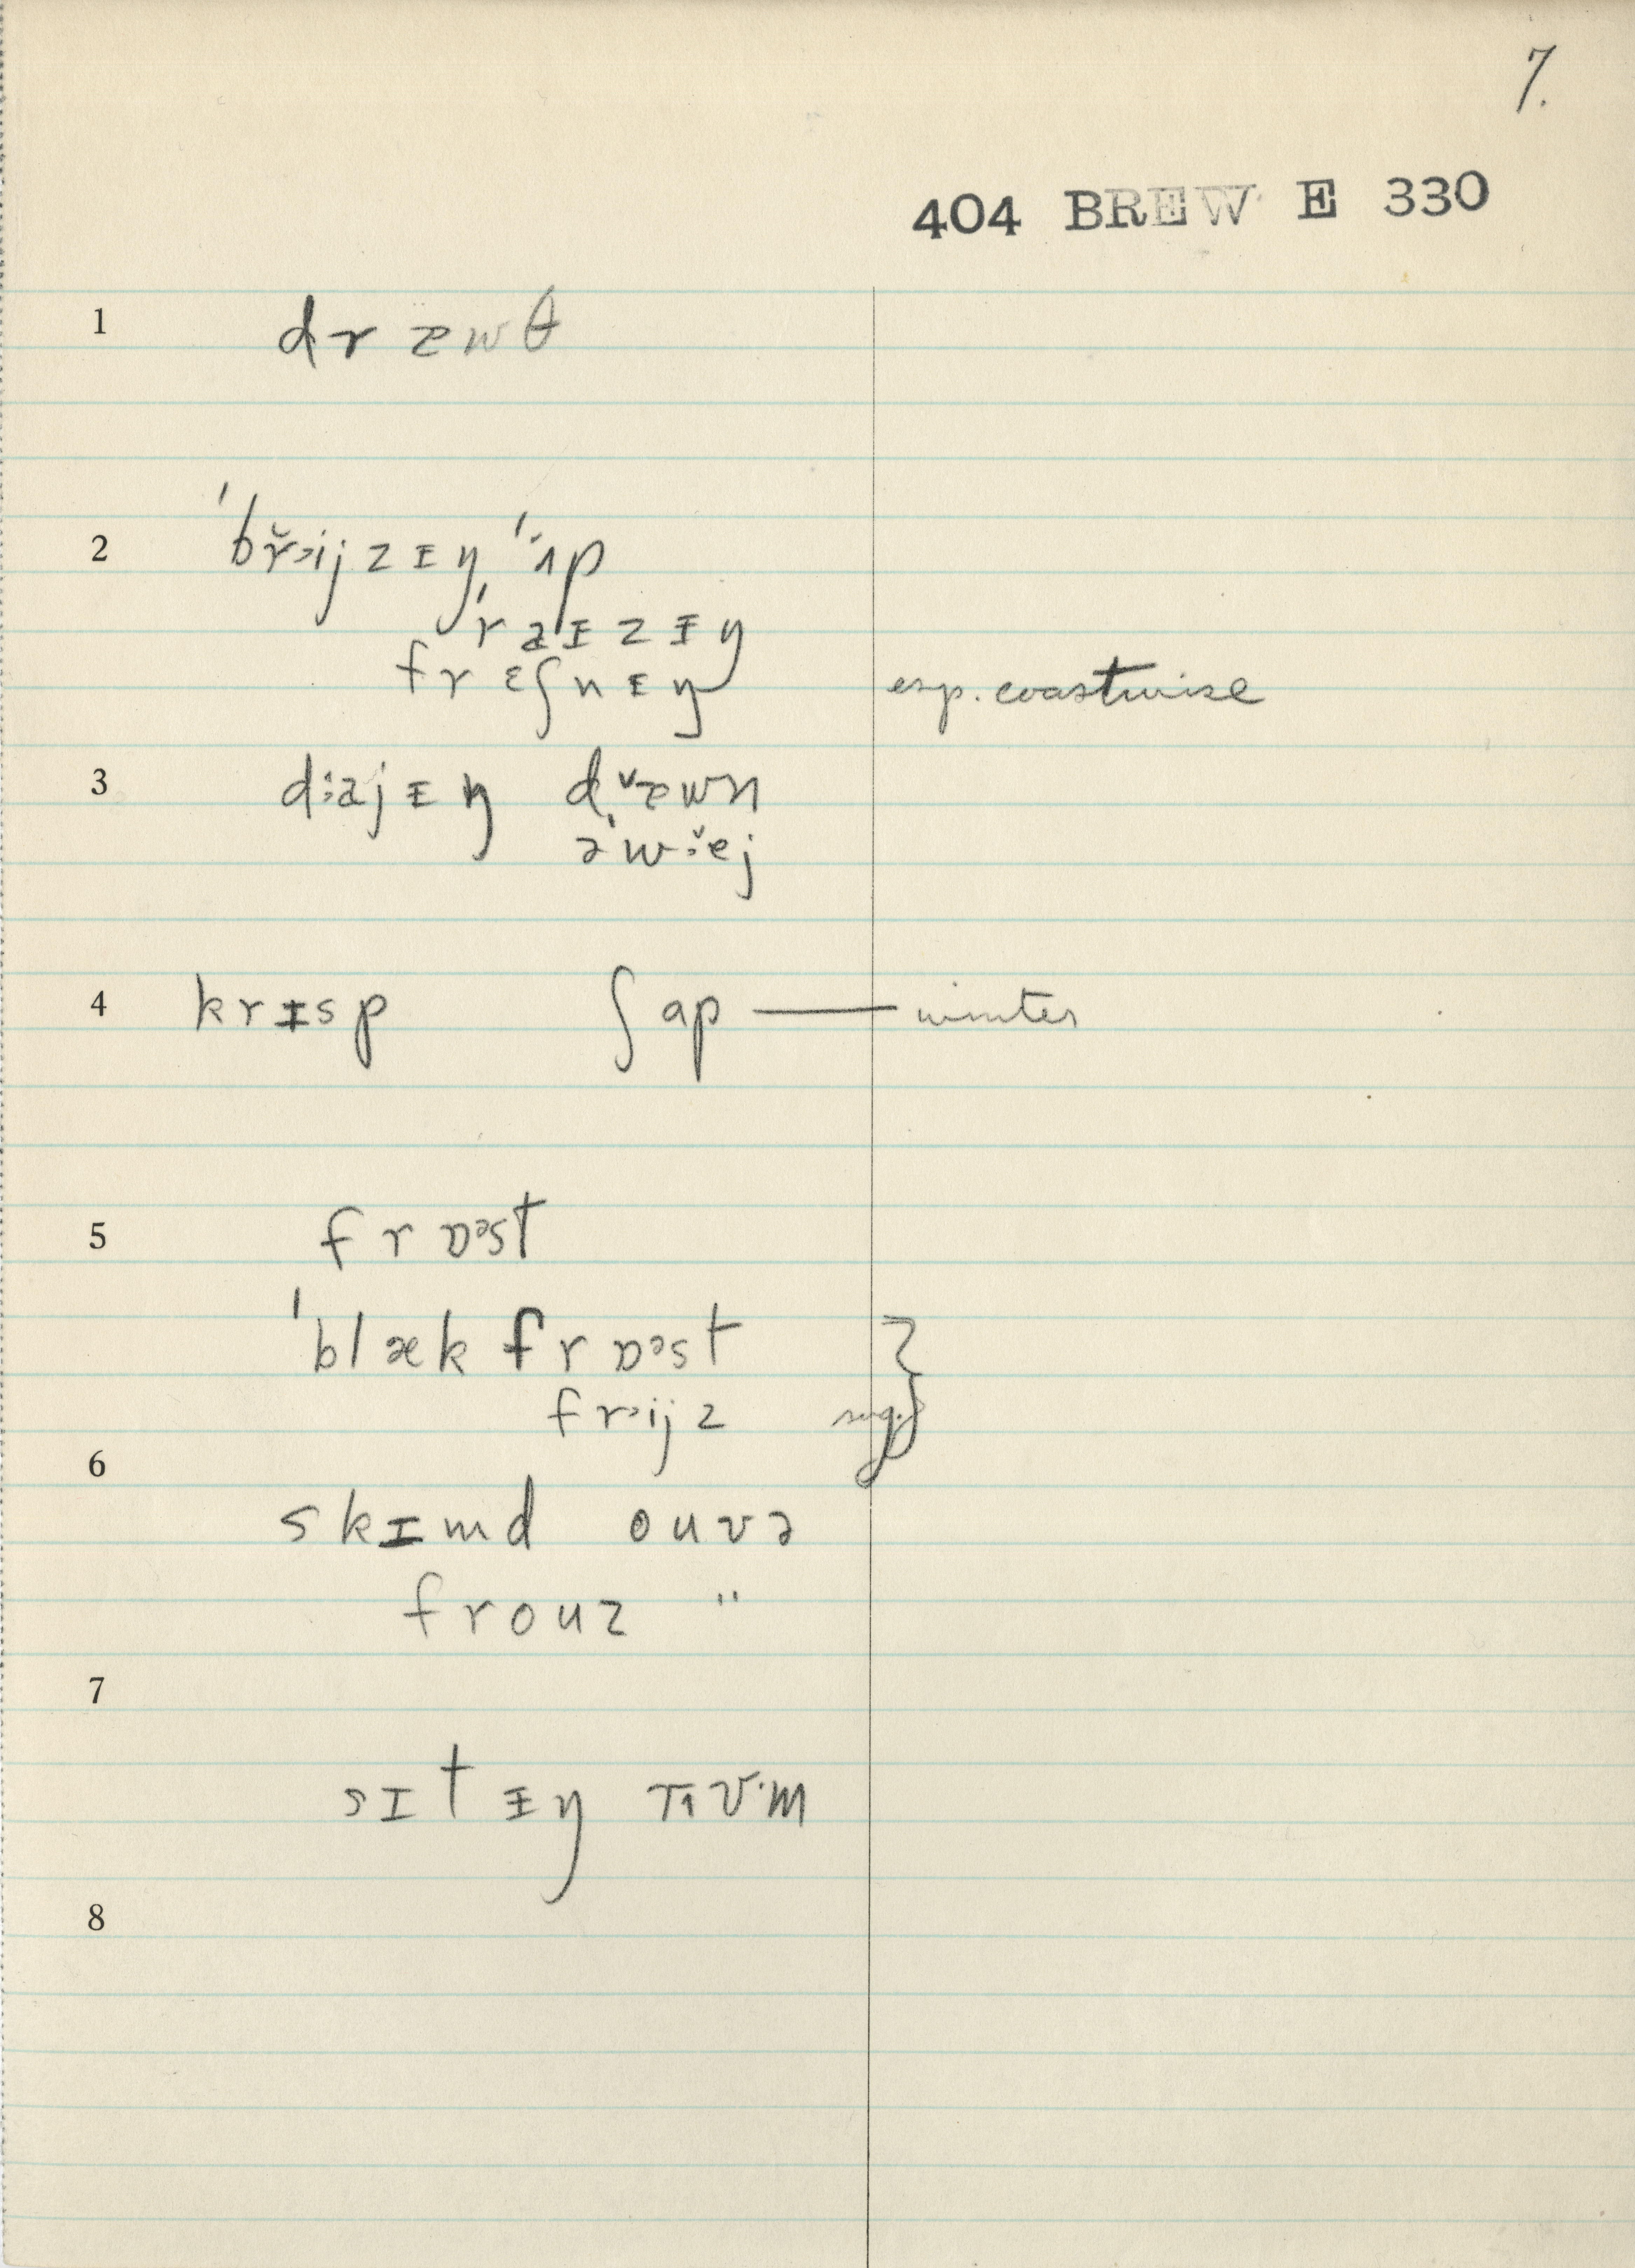 7.
404 BREW E 330
1 dr æwθ
2 ˈbř᾿ijzɪŋ ˈʌp
ˈraɪzɪŋ
frɛʃnɪŋ esp. coastwise
3 d:ajɪŋ dæwn
əˈw:ej
4 krɪsp ʃap — winter
5 frɒᵊst
ˈblæk frɒᵊst }
frᵊijz sug. }
6
skɪmd ouvə
frouz "
7
sɪtɪŋ rᵻʊ·m
8